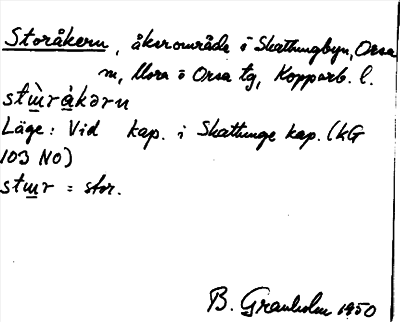 Storåkern, åkerområde i Skattungbyn, Orsa
m, Mora o Orsa tg, Kopparb. l.
stɯ̀rákərn
Läge: Vid kap. i Skattunge kap. (kG
103 NO)
stɯr = stor.
B. Granholm 1950